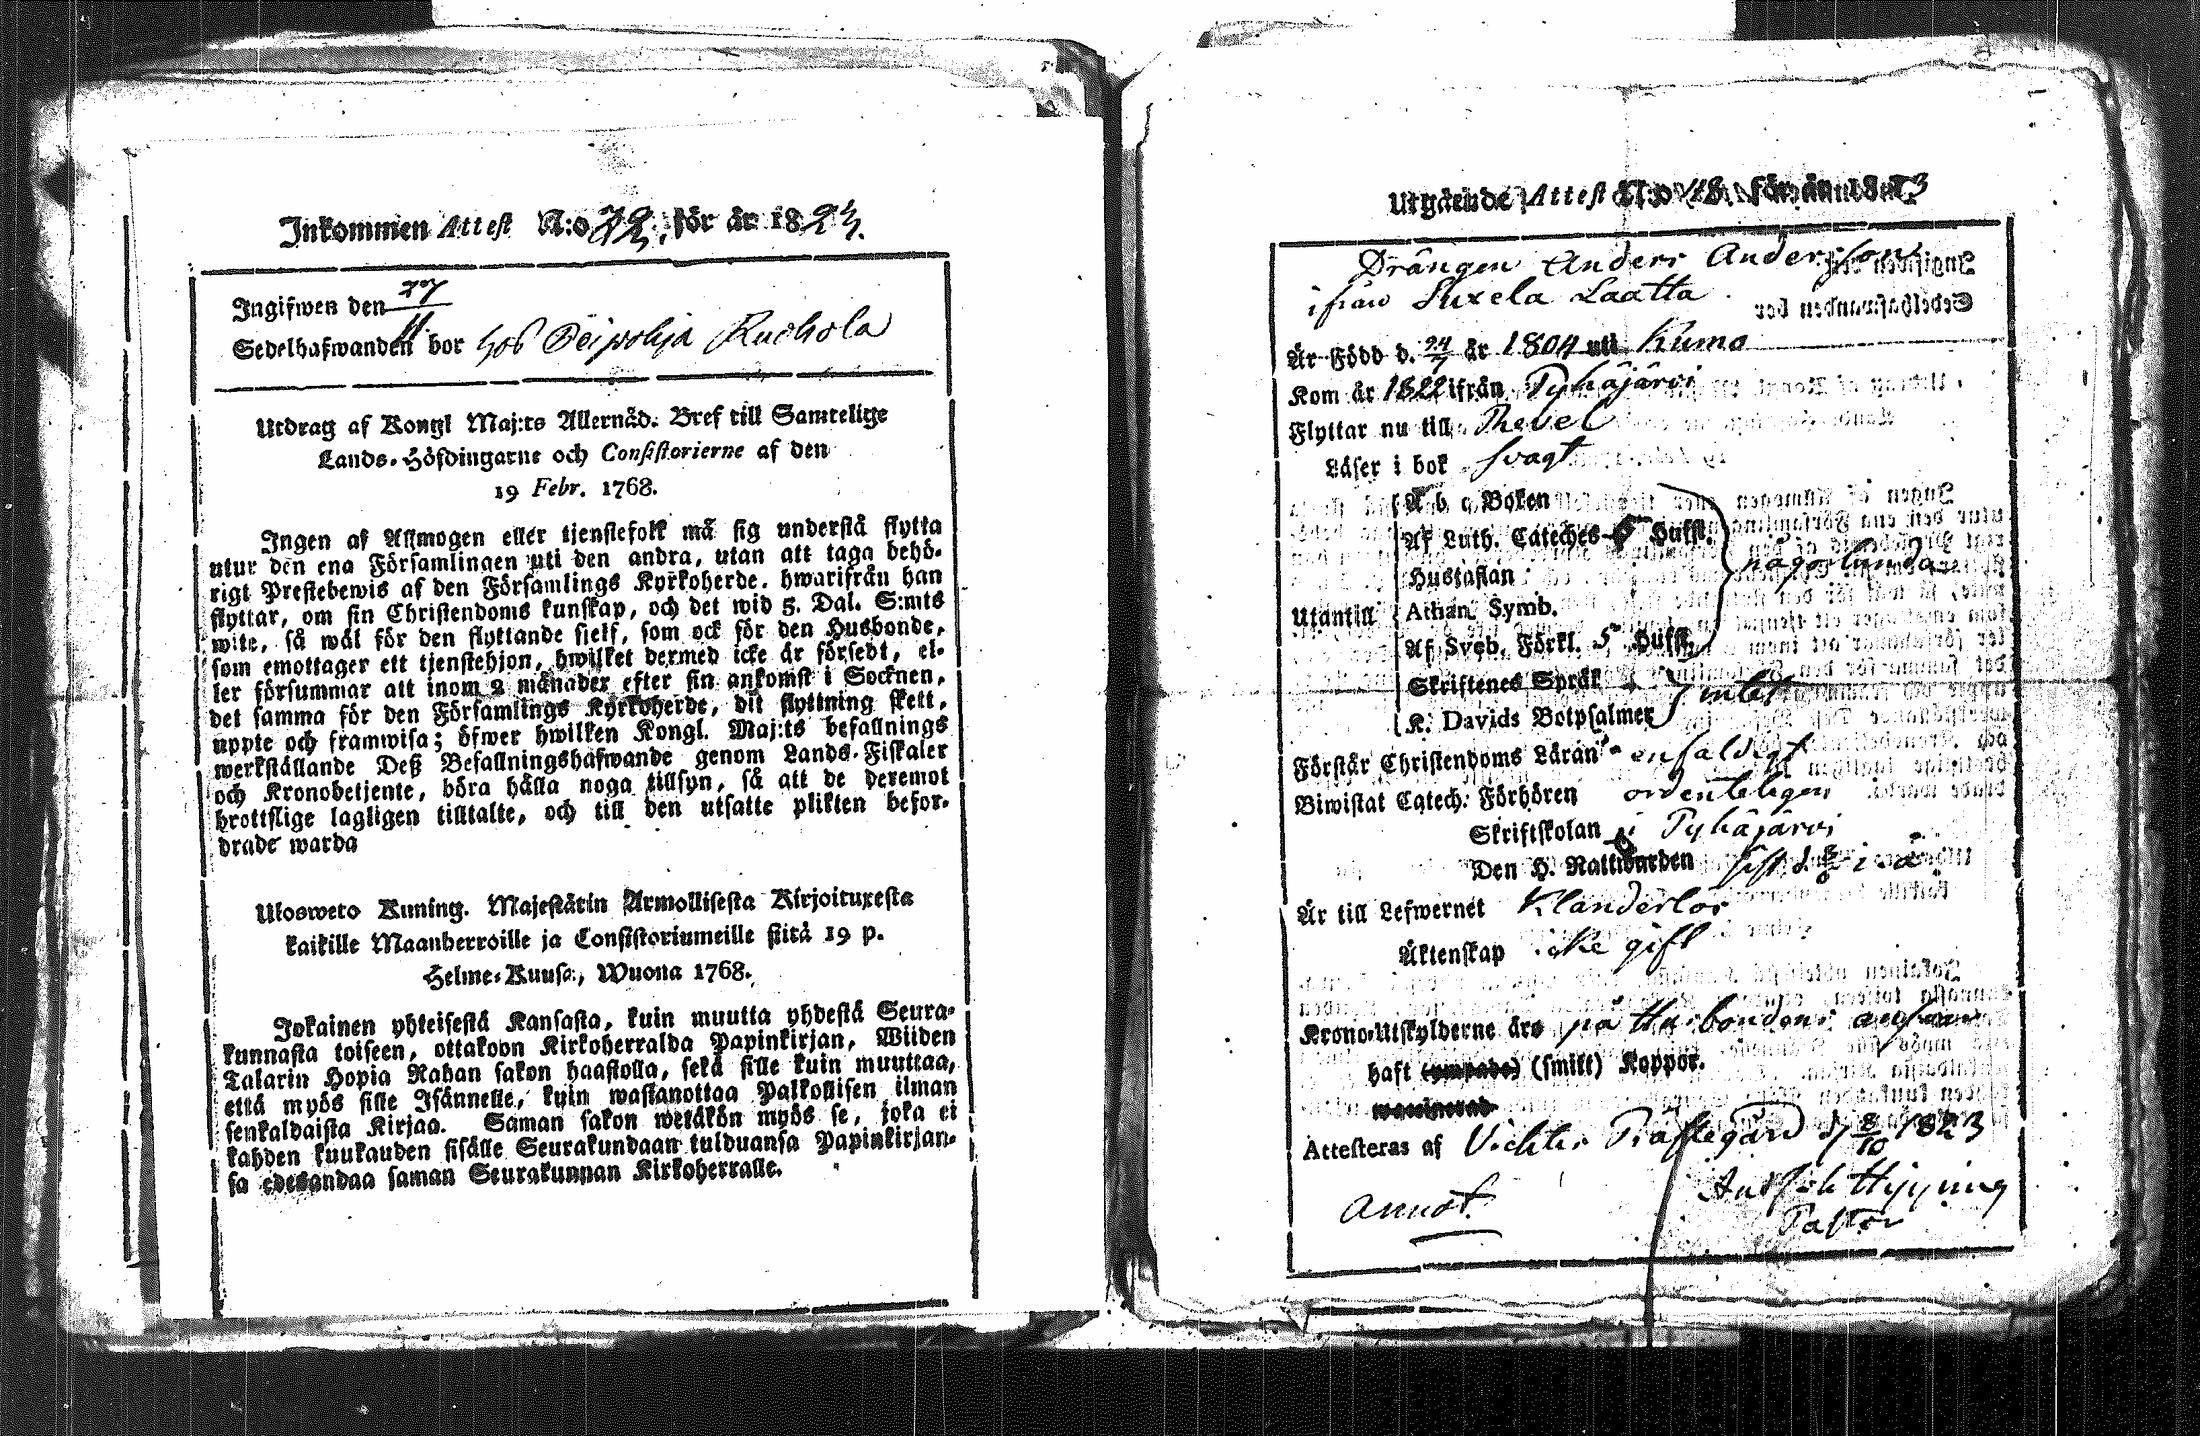 Inkommen Attest N:o 72, för år 1823.
Ingifwen den 27/11
Sedelhafwanden bor hos Peipohja Ruohola
Utdrag af Kongl Maj:ts Allernåd. Bref till Samtelige
Lands-Höfdingarne och Consistorierne af den
19 Febr. 1768.
Ingen af Allmogen eller tjenstefolk må sig understå flytta
utur den ena Församlingen uti den andra, utan att taga behö-
rigt Prestebewis af den Församlings Kyrkoherde, hwarifrån han
flyttar, om sin Christendoms kunskap, och det wid 5. Dal. S:mts
wite, så wäl för den flyttande sielf, som ock för den Husbonde,
som emottager ett tjenstehjon, hwilket dermed icke är försedt, el-
ler försummar att inom 2 månader efter sin ankomst i Socknen,
det samma för den Församlings Kyrkoherde, dit flyttning skett,
uppte och framwisa; öfwer hwilken Kongl. Maj:ts befallnings
werkställande Deß Befallningshafwande genom Lands-Fiskaler
och Kronobetjente, böra hålla noga tillsyn, så att de deremot
brottslige lagligen tilltalte, och till den utsatte plikten befor-
drade warda
Ulosweto Kuning. Majestätin Armollisesta Kirjoituxesta
kaikille Maanherroille ja Consistoriumeille siitä 19 p.
Helme-Kuusa:, Wuona 1768.
Jokainen yhteisestä Kansasta, kuin muutta yhdestä Seura-
kunnasta toiseen, ottakoon Kirkoherralda Papinkirjan, Wiiden
Talarin Hopia Rahan sakon haastolla, sekä sille kuin muuttaa,
että myös sille Isännelle, kuin wastanottaa Palkollisen ilman
senkaldaista Kirjaa. Saman sakon wetäkön myös se, joka ei
kahden kuukauden sisälle Seurakundaan tulduansa Papinkirjan-
sa edesandaa saman Seurakunnan Kirkoherralle.
Utgående Attest N:o 48. för år 1823
Drängen Anders Andersson
ifrån Suxela Laatta.
Är Född d. 24/7 år 1804 uti Kumo
Kom år 1822 ifrån Pyhäjärvi
Flyttar nu till
Läser i bok svagt
Utantill
A b c Boken
Af Luth. Cateches 5 Hufst.
Hustaflan
någorlunda
Athan. Symb.
Af Sveb. Förkl. 5 Hufst.
Skriftenes Språk
K. Davids Botpsalmer
intet
Förstår Christendoms Läran enfaldigt
Biwistat Catech: Förhören ordenteligen
Skriftskolan i Pyhäjärvi
Den H. Nattwarden
Är till Lefwernet Klanderlös
Äktenskap icke gift
Krono-Utskylderne äro på Husbondens ansvar
haft (ympade) (smitt) Koppor.
waccinerad
Attesteras af Vichtis Prästegård d. 8/10 1823
Annot.
Pastor